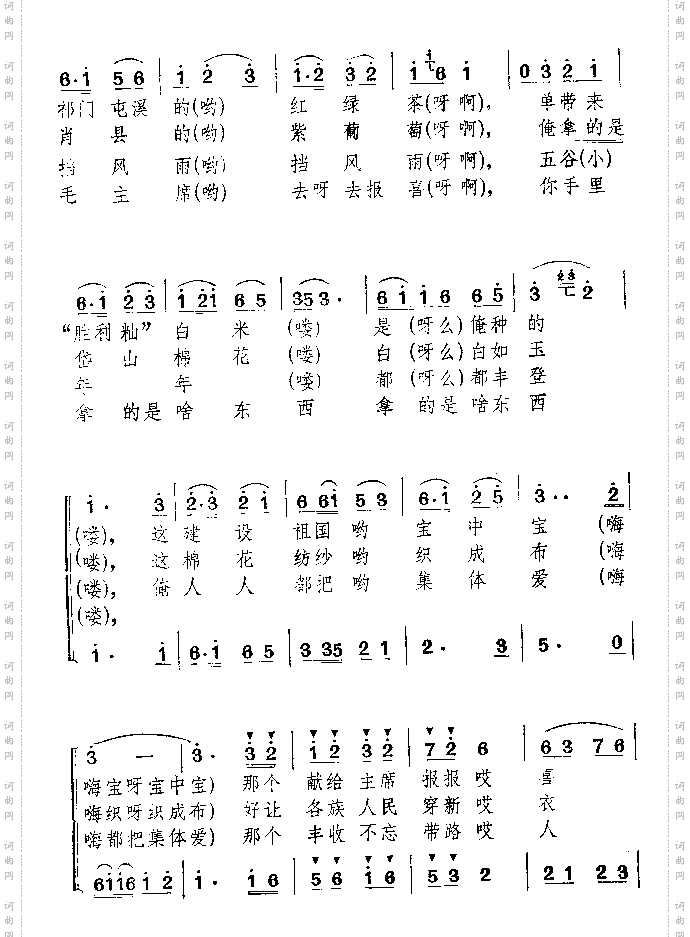 6·i 56 | i 2 3 | i·2 32 | i 6 i | 0 3 2 i
祁门 屯溪 的(哟) 红 绿 茶(呀 啊), 单带来
肖 县 的(哟) 紫 葡 萄(呀 啊), 俺拿的是
挡 风 雨(哟) 挡 风 雨(呀 啊), 五谷(小)
毛 主 席(哟) 去呀 去报 喜(呀 啊), 你手里
6·i 2 3 | i 2i 6 5 | 35 3· | 6 i i 6 6 5 | 3 2
“胜利籼” 白 米 (喽) 是 (呀么) 俺种 的
岱 山 棉 花 (喽) 白 (呀么) 白如 玉
年 年 (喽) 都 (呀么) 都丰 登
拿 的是 啥 东 西 拿 的是 啥东 西
i· 3 | 2·3 2 i | 6 6i 5 3 | 6·i 2 5 | 3·· 2
(喽), 这 建 设 祖国 哟 宝 中 宝 (嗨
(喽), 这 棉 花 纺纱 哟 织 成 布 (嗨
(喽), 俺 人 人 都把 哟 集 体 爱 (嗨
(喽),
i· i | 6·i 6 i | 3 35 2 1 | 2· 3 | 5· 0
3 — | 3· 3 2 | i 2 3 2 | 7 2 6 | 6 3 7 6
嗨宝呀宝中宝) 那个 献给 主席 报报 哎 喜
嗨织呀织成布) 好让 各族 人民 穿新 哎 衣
嗨都把集体爱) 那个 丰收 不忘 带路 哎 人
6i i6 i 2 | i· i 6 | 5 6 i 6 | 5 3 2 | 2 1 2 3
词曲网